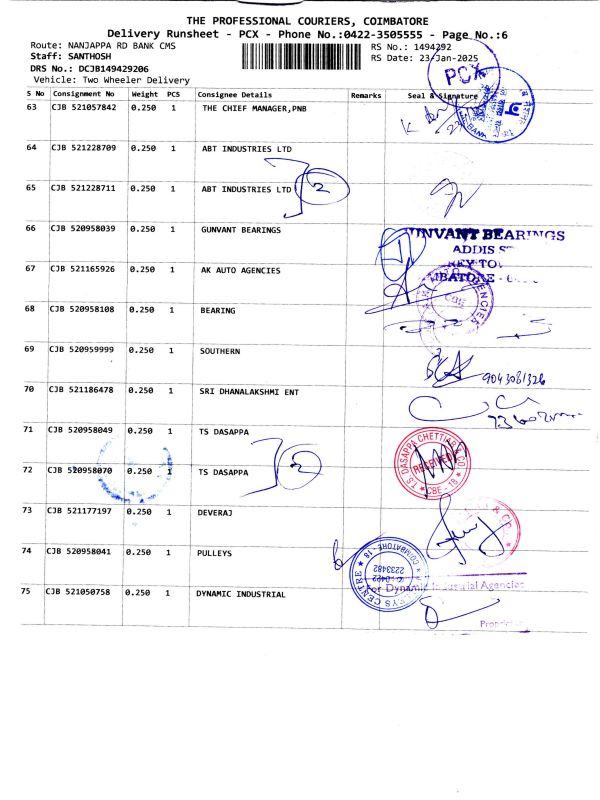 THE PROFESSIONAL COURIERS, COIMBATORE
Delivery Runsheet - PCX - Phone No.:0422-3505555 - Page No.:6
Route: NANJAPPA RD BANK CMS
RS No.: 1494292
Staff: SANTHOSH
RS Date: 23-Jan-2025
DRS No.: DCJB149429206
Vehicle: Two Wheeler Delivery
PCX
S No Consignment No Weight PCS Consignee Details Remarks Seal & Signature
63 CJB 521057842 0.250 1 THE CHIEF MANAGER,PNB
64 CJB 521228709 0.250 1 ABT INDUSTRIES LTD
2
65 CJB 521228711 0.250 1 ABT INDUSTRIES LTD
66 CJB 520958039 0.250 1 GUNVANT BEARINGS
UNVANT BEARINGS
ADDIS
67 CJB 521165926 0.250 1 AK AUTO AGENCIES
CBE
68 CJB 520958108 0.250 1 BEARING
69 CJB 520959999 0.250 1 SOUTHERN
9043081326
70 CJB 521186478 0.250 1 SRI DHANALAKSHMI ENT
71 CJB 520958049 0.250 1 TS DASAPPA
T.S. DASAPPA CHETTIAR & CO.
RECEIVED
CBE - 18
72 CJB 520958070 0.250 1 TS DASAPPA
2
73 CJB 521177197 0.250 1 DEVERAJ
& CO.
74 CJB 520958041 0.250 1 PULLEYS
COIMBATORE - 18
2233482
0422
CENTRE
For Dynamic Industrial Agencies
75 CJB 521050758 0.250 1 DYNAMIC INDUSTRIAL